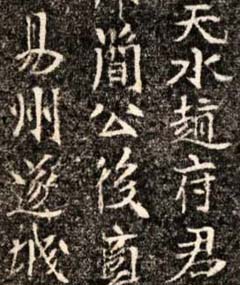 天水趙府君
簡公後裔
易州遂城